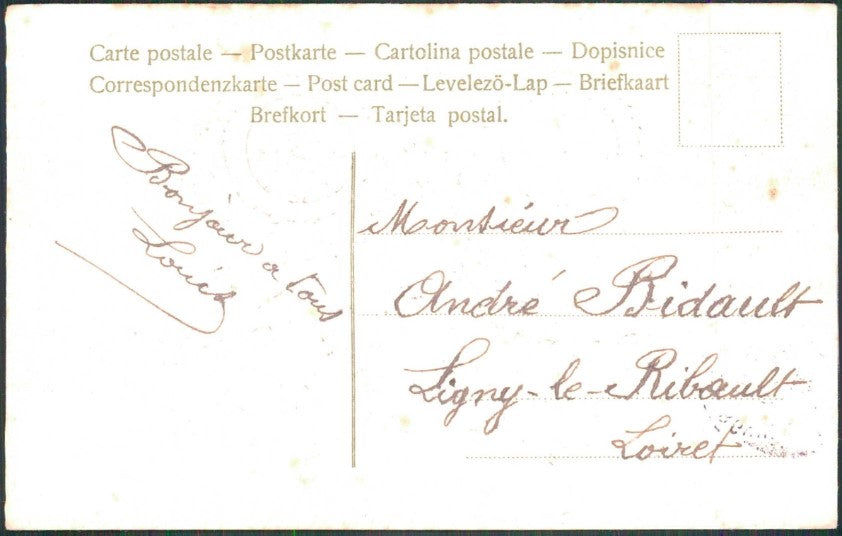 Carte postale — Postkarte — Cartolina postale — Dopisnice
Correspondenzkarte — Post card — Levelezö-Lap — Briefkaart
Brefkort — Tarjeta postal.
Bonjour a tous
Louis
Monsieur
André Bidault
Ligny-le-Ribault
Loiret